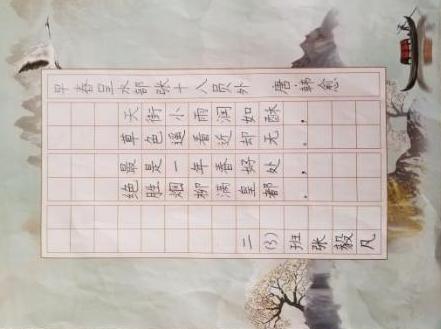 早春呈水部张十八员外 唐 韩愈
天街小雨润如酥，
草色遥看近却无。
最是一年春好处，
绝胜烟柳满皇都。
二(3)班张毅凡